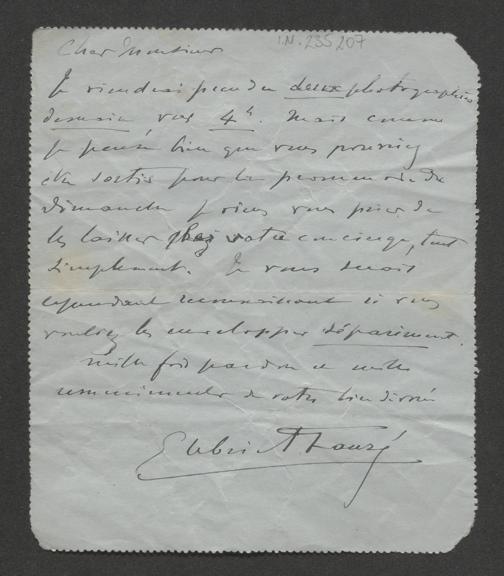 I.N. 235 207
Cher Monsieur
Je viendrai prendre deux photographies
demain vers 4h. Mais comme
je pense bien que vous pourriez
être sorti pour la promenade du
dimanche je viens vous prier de
les laisser chez votre concierge, tout
simplement. Je vous serais
cependant reconnaissant si vous
vouliez les envelopper séparément.
Mille fois pardon et mille
remerciements de votre bien dévoué
Gabriel Fauré